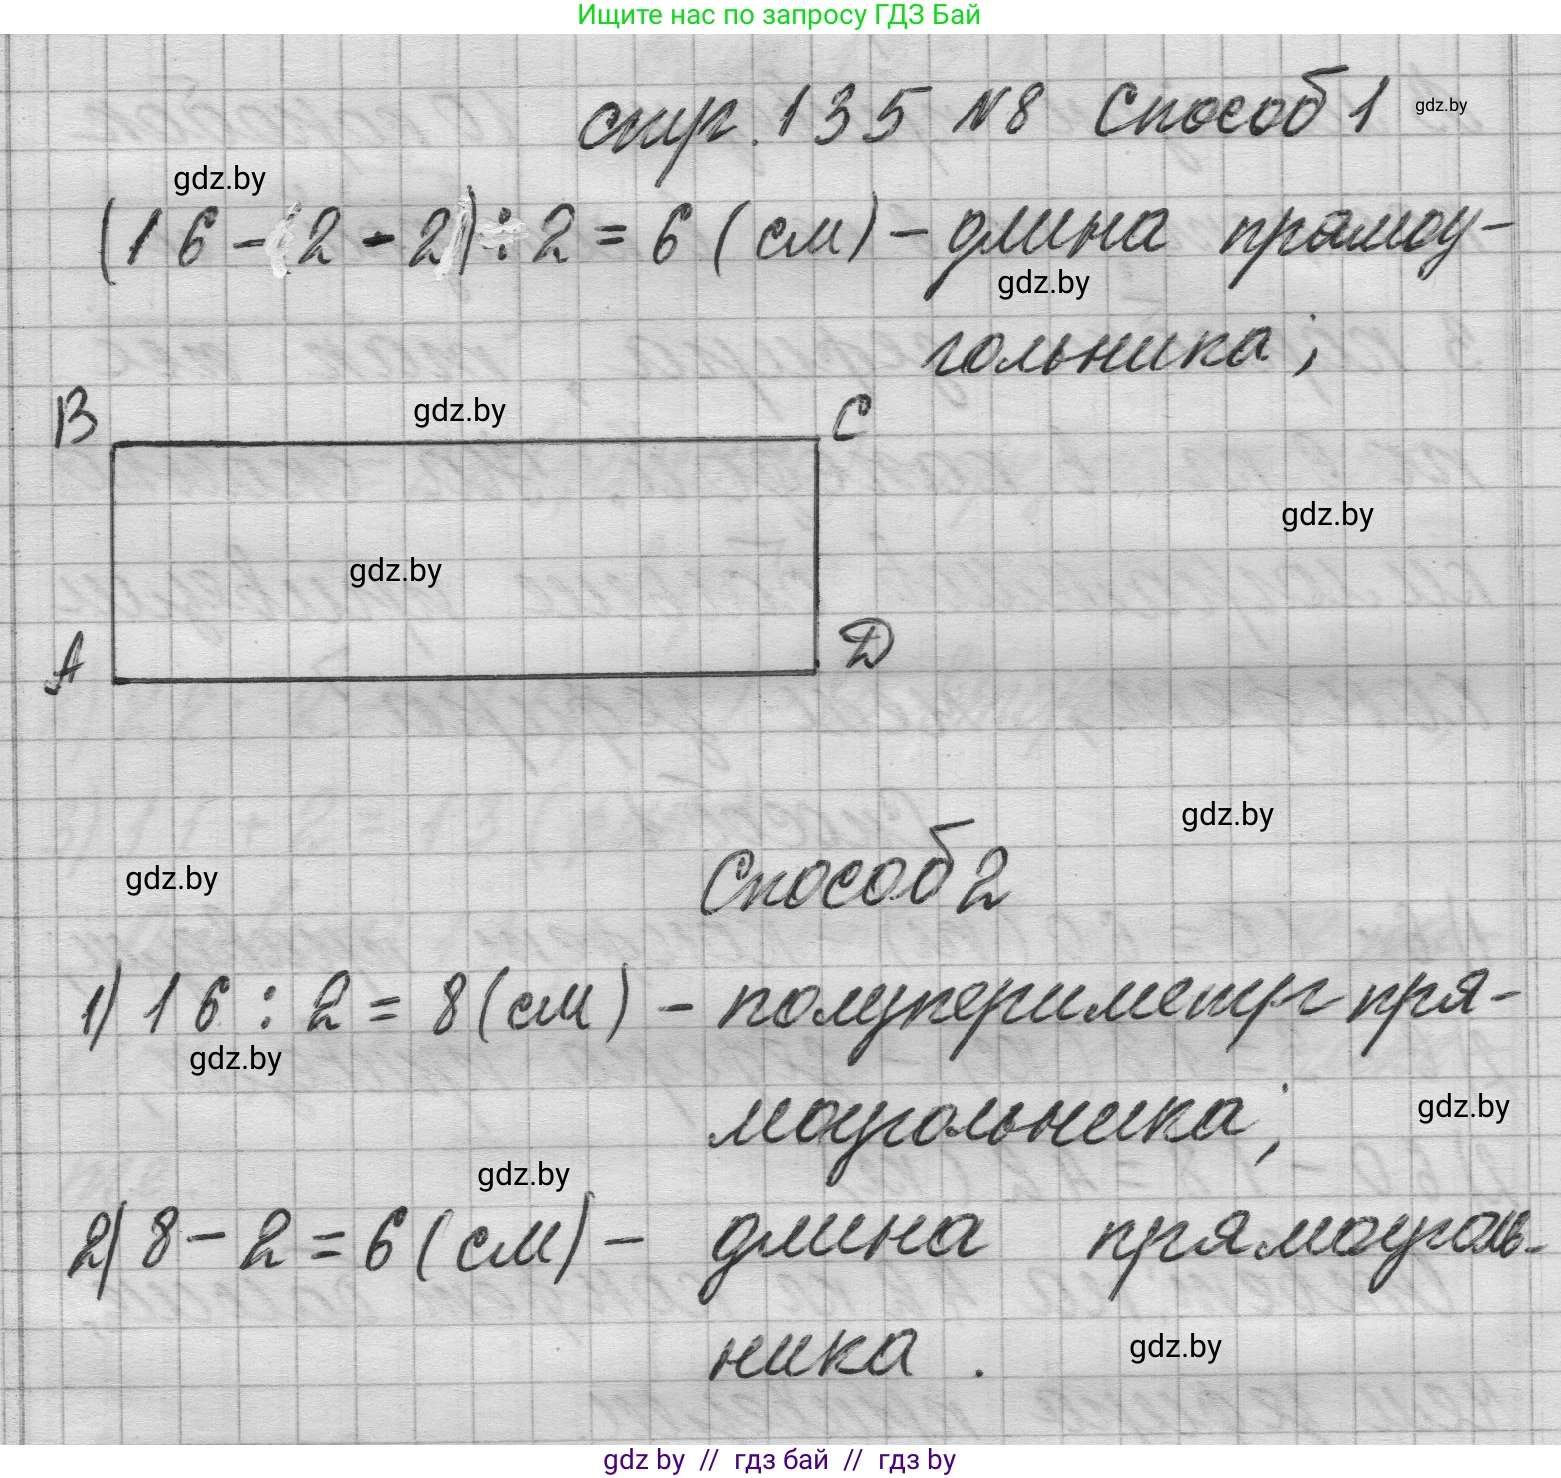 Ищите нас по запросу ГДЗ Бай
стр. 135 №8 Способ 1 gdz.by
gdz.by
(16 - 2 - 2) : 2 = 6 (см) - длина прямоу-
gdz.by
гольника;
B gdz.by C
gdz.by
gdz.by
A D
gdz.by
gdz.by
Способ 2
1) 16 : 2 = 8 (см) - полупериметр пря-
gdz.by
моугольника; gdz.by
gdz.by
2) 8 - 2 = 6 (см) - длина прямоуголь-
ника. gdz.by
gdz by // гдз бай // гдз by